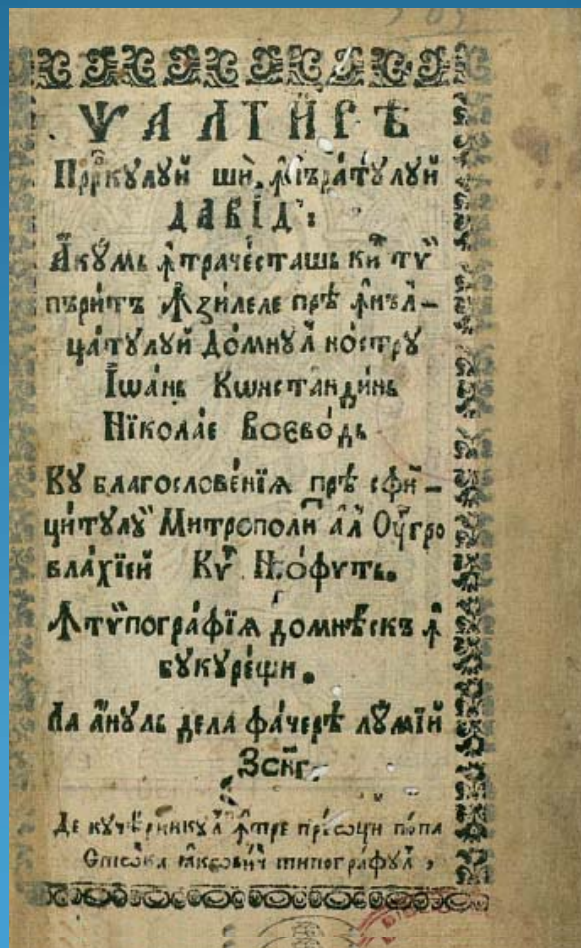 ѰАЛТИРѢ
Прⷪ҇ркулуй ши, ꙟпъратулуй
ДАВІДⷣ:
А҆кумь ꙟтраче́сташь киⷫ҇ тѵ
пъри́тъ Ꙟзилеле прѣ ꙟнъл–
ца́тулуй До́мнулⷹ но́стру
Їѡа́нь Кѡнстанди́нь
Нїкола́е Воево́дь
Ку благослове́нїѧ прѣ сфи́н–
цитулуⷤ Митрополиⷮ ал Оу҆гро
вла́хїей Кѵⷬ Нео́фѵть.
Ꙟ тѷпогра́фїѧ домнѣ́скъ ꙟ
букуре́щи.
Ла а́нуль дела фа́черѣ лу́мїй
҂зсн҃г.
Де кучѣ́рникул ꙟтре прѣѡци по́па
типогра́фул,